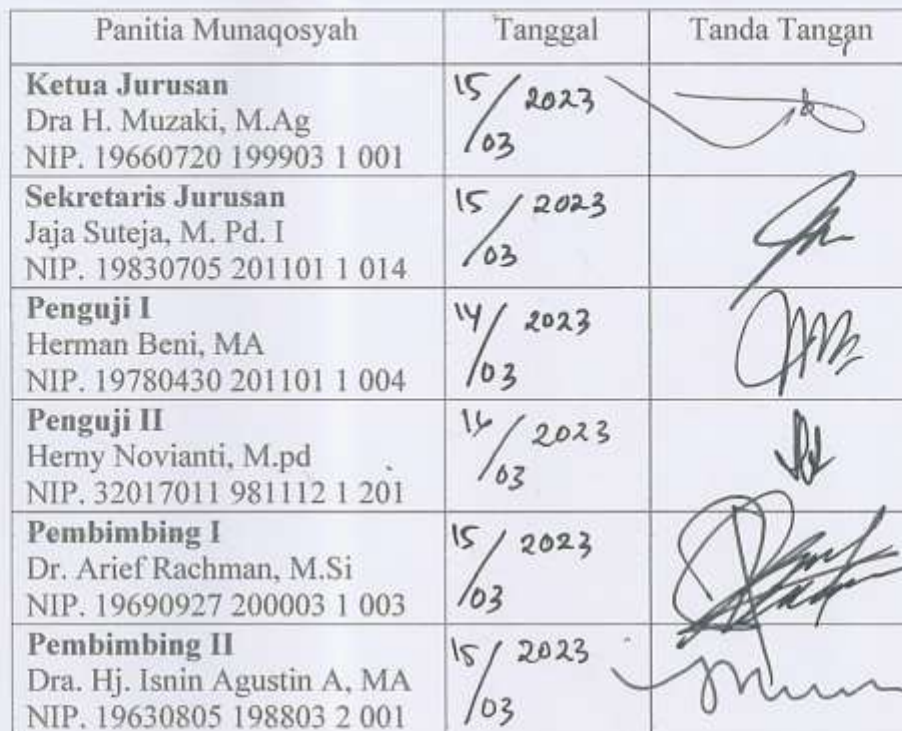 Panitia Munaqosyah Tanggal Tanda Tangan
Ketua Jurusan
Dra H. Muzaki, M.Ag
NIP. 19660720 199903 1 001
15/03 2023
Sekretaris Jurusan
Jaja Suteja, M. Pd. I
NIP. 19830705 201101 1 014
15/03 2023
Penguji I
Herman Beni, MA
NIP. 19780430 201101 1 004
14/03 2023
Penguji II
Herny Novianti, M.pd
NIP. 32017011 981112 1 201
/03 2023
Pembimbing I
Dr. Arief Rachman, M.Si
NIP. 19690927 200003 1 003
15/03 2023
Pembimbing II
Dra. Hj. Isnin Agustin A, MA
NIP. 19630805 198803 2 001
15/03 2023